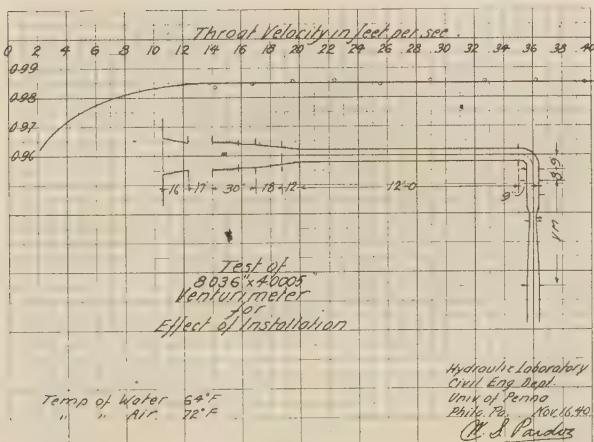 Throat Velocity in feet per sec.
0 2 4 6 8 10 12 14 16 18 20 22 24 26 28 30 32 34 36 38 40
0.99
0.98
0.97
0.96
16 17 30 18 12 12'-0
Test of
8.036" x 4.0005"
Venturimeter
for
Effect of Installation
Temp of Water 64°F
" " Air. 72°F
Hydraulic Laboratory
Civil Eng Dept.
Univ of Penna
Phila. Pa. Nov. 16.40
W. S. Pardoe